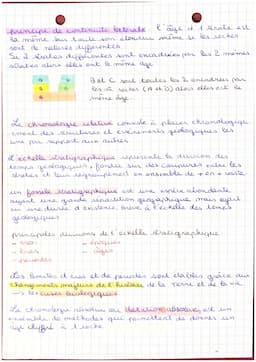 principe de continuité latérale : l'âge d'1 strate est
la même sur toute son étendue même si les roches
sont de natures différentes.
Si 2 strates différentes sont encadrées par les 2 mêmes
strates alors elles ont le même âge
B et C sont toutes les 2 encadrées par
les 2 roches (A et D) alors elles ont le
même âge
La chronologie relative consiste à placer chronologique
-ment des structures et événements géologiques les
uns par rapport aux autres
L'échelle stratigraphique représente la division des
temps géologiques, fondée sur des coupures entre les
strates et leur regroupement en ensemble de + en + vaste
un fossile stratigraphique est une espèce abondante
ayant une grande répartition géographique mais ayant
eu une durée d'existence brève à l'échelle des temps
géologiques
principales divisions de l'échelle stratigraphique
- eons
- époques
- eres
- âges
- périodes
Les limites d'eres et de periodes sont établies grâce aux
changements majeurs de l'histoire de la terre et de la vie
→ les crises biologiques
La chronologie absolue ou datation absolue, est un
ensemble de méthodes qui permettent de donner un
âge chiffré à 1 roche